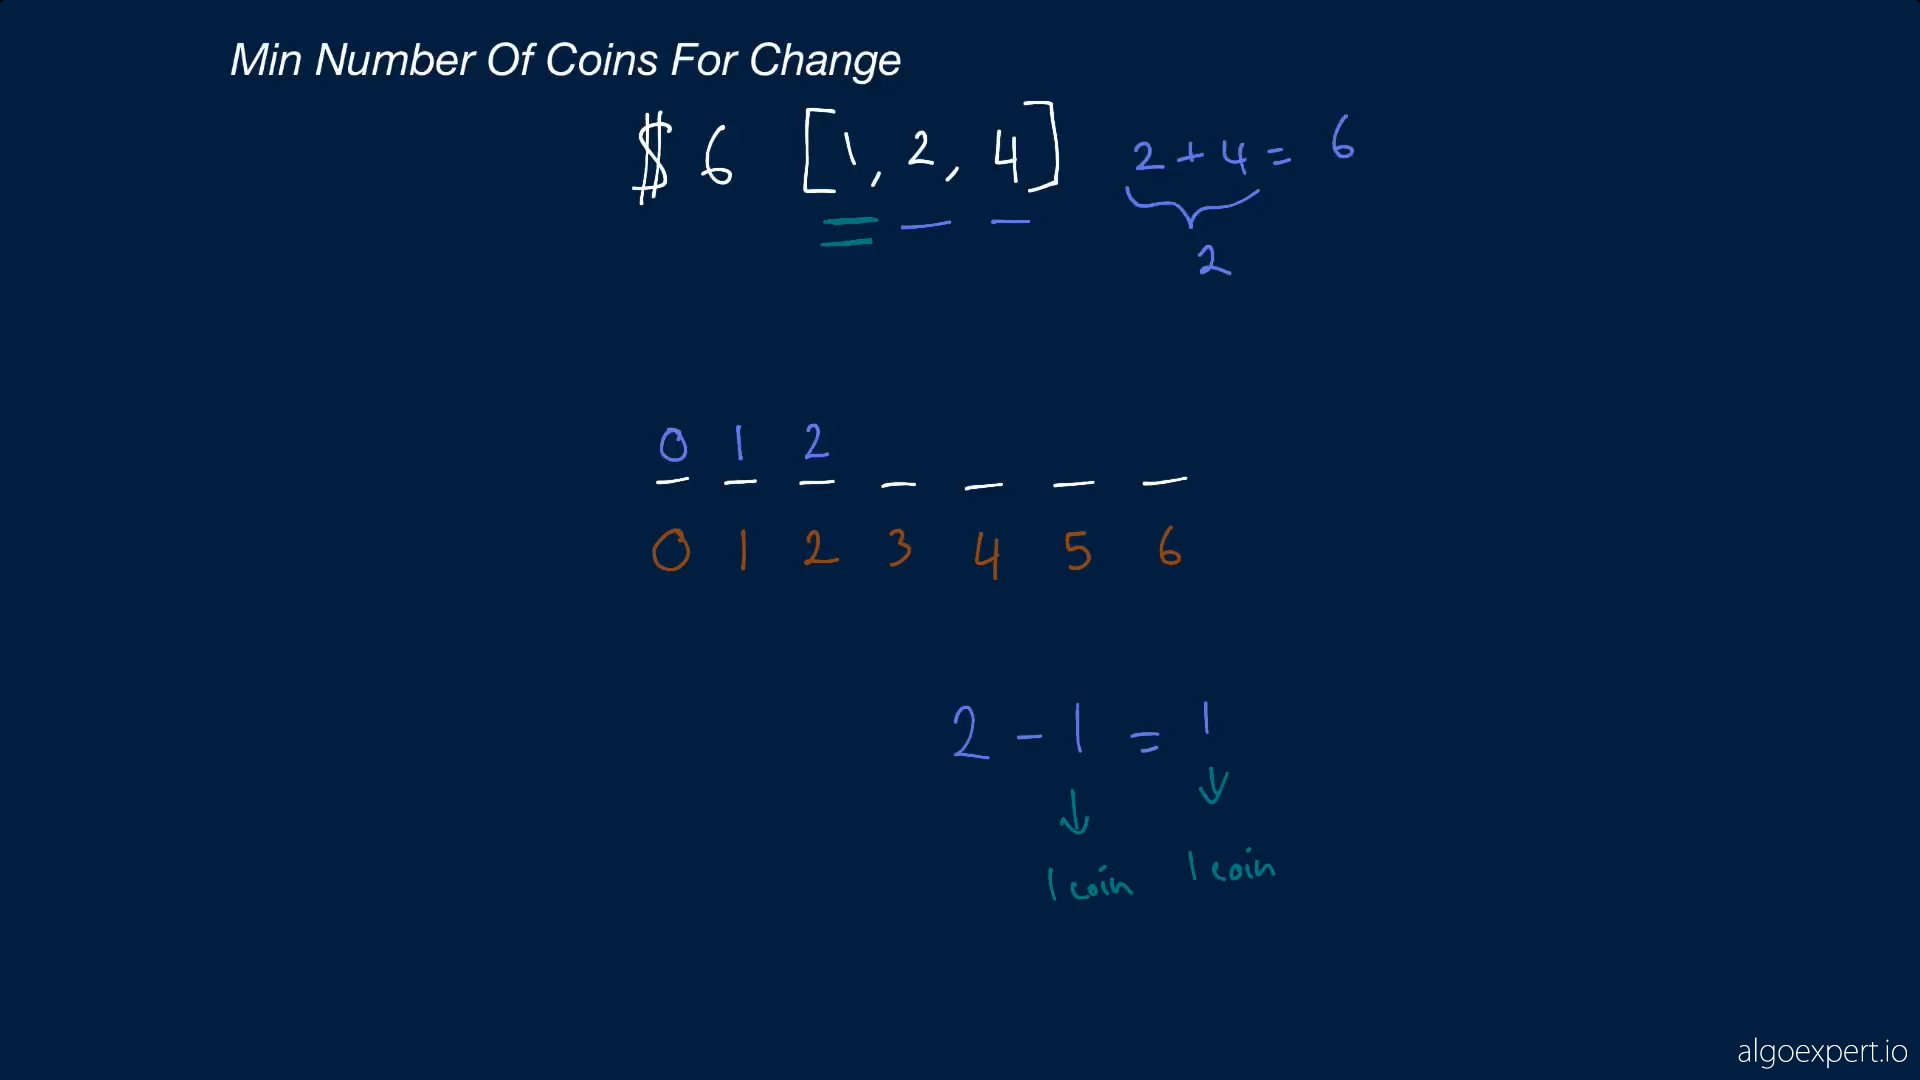 Min Number Of Coins For Change
$ 6 [1, 2, 4] 2 + 4 = 6
2
0 1 2
0 1 2 3 4 5 6
2 - 1 = 1
1 coin 1 coin
algoexpert.io